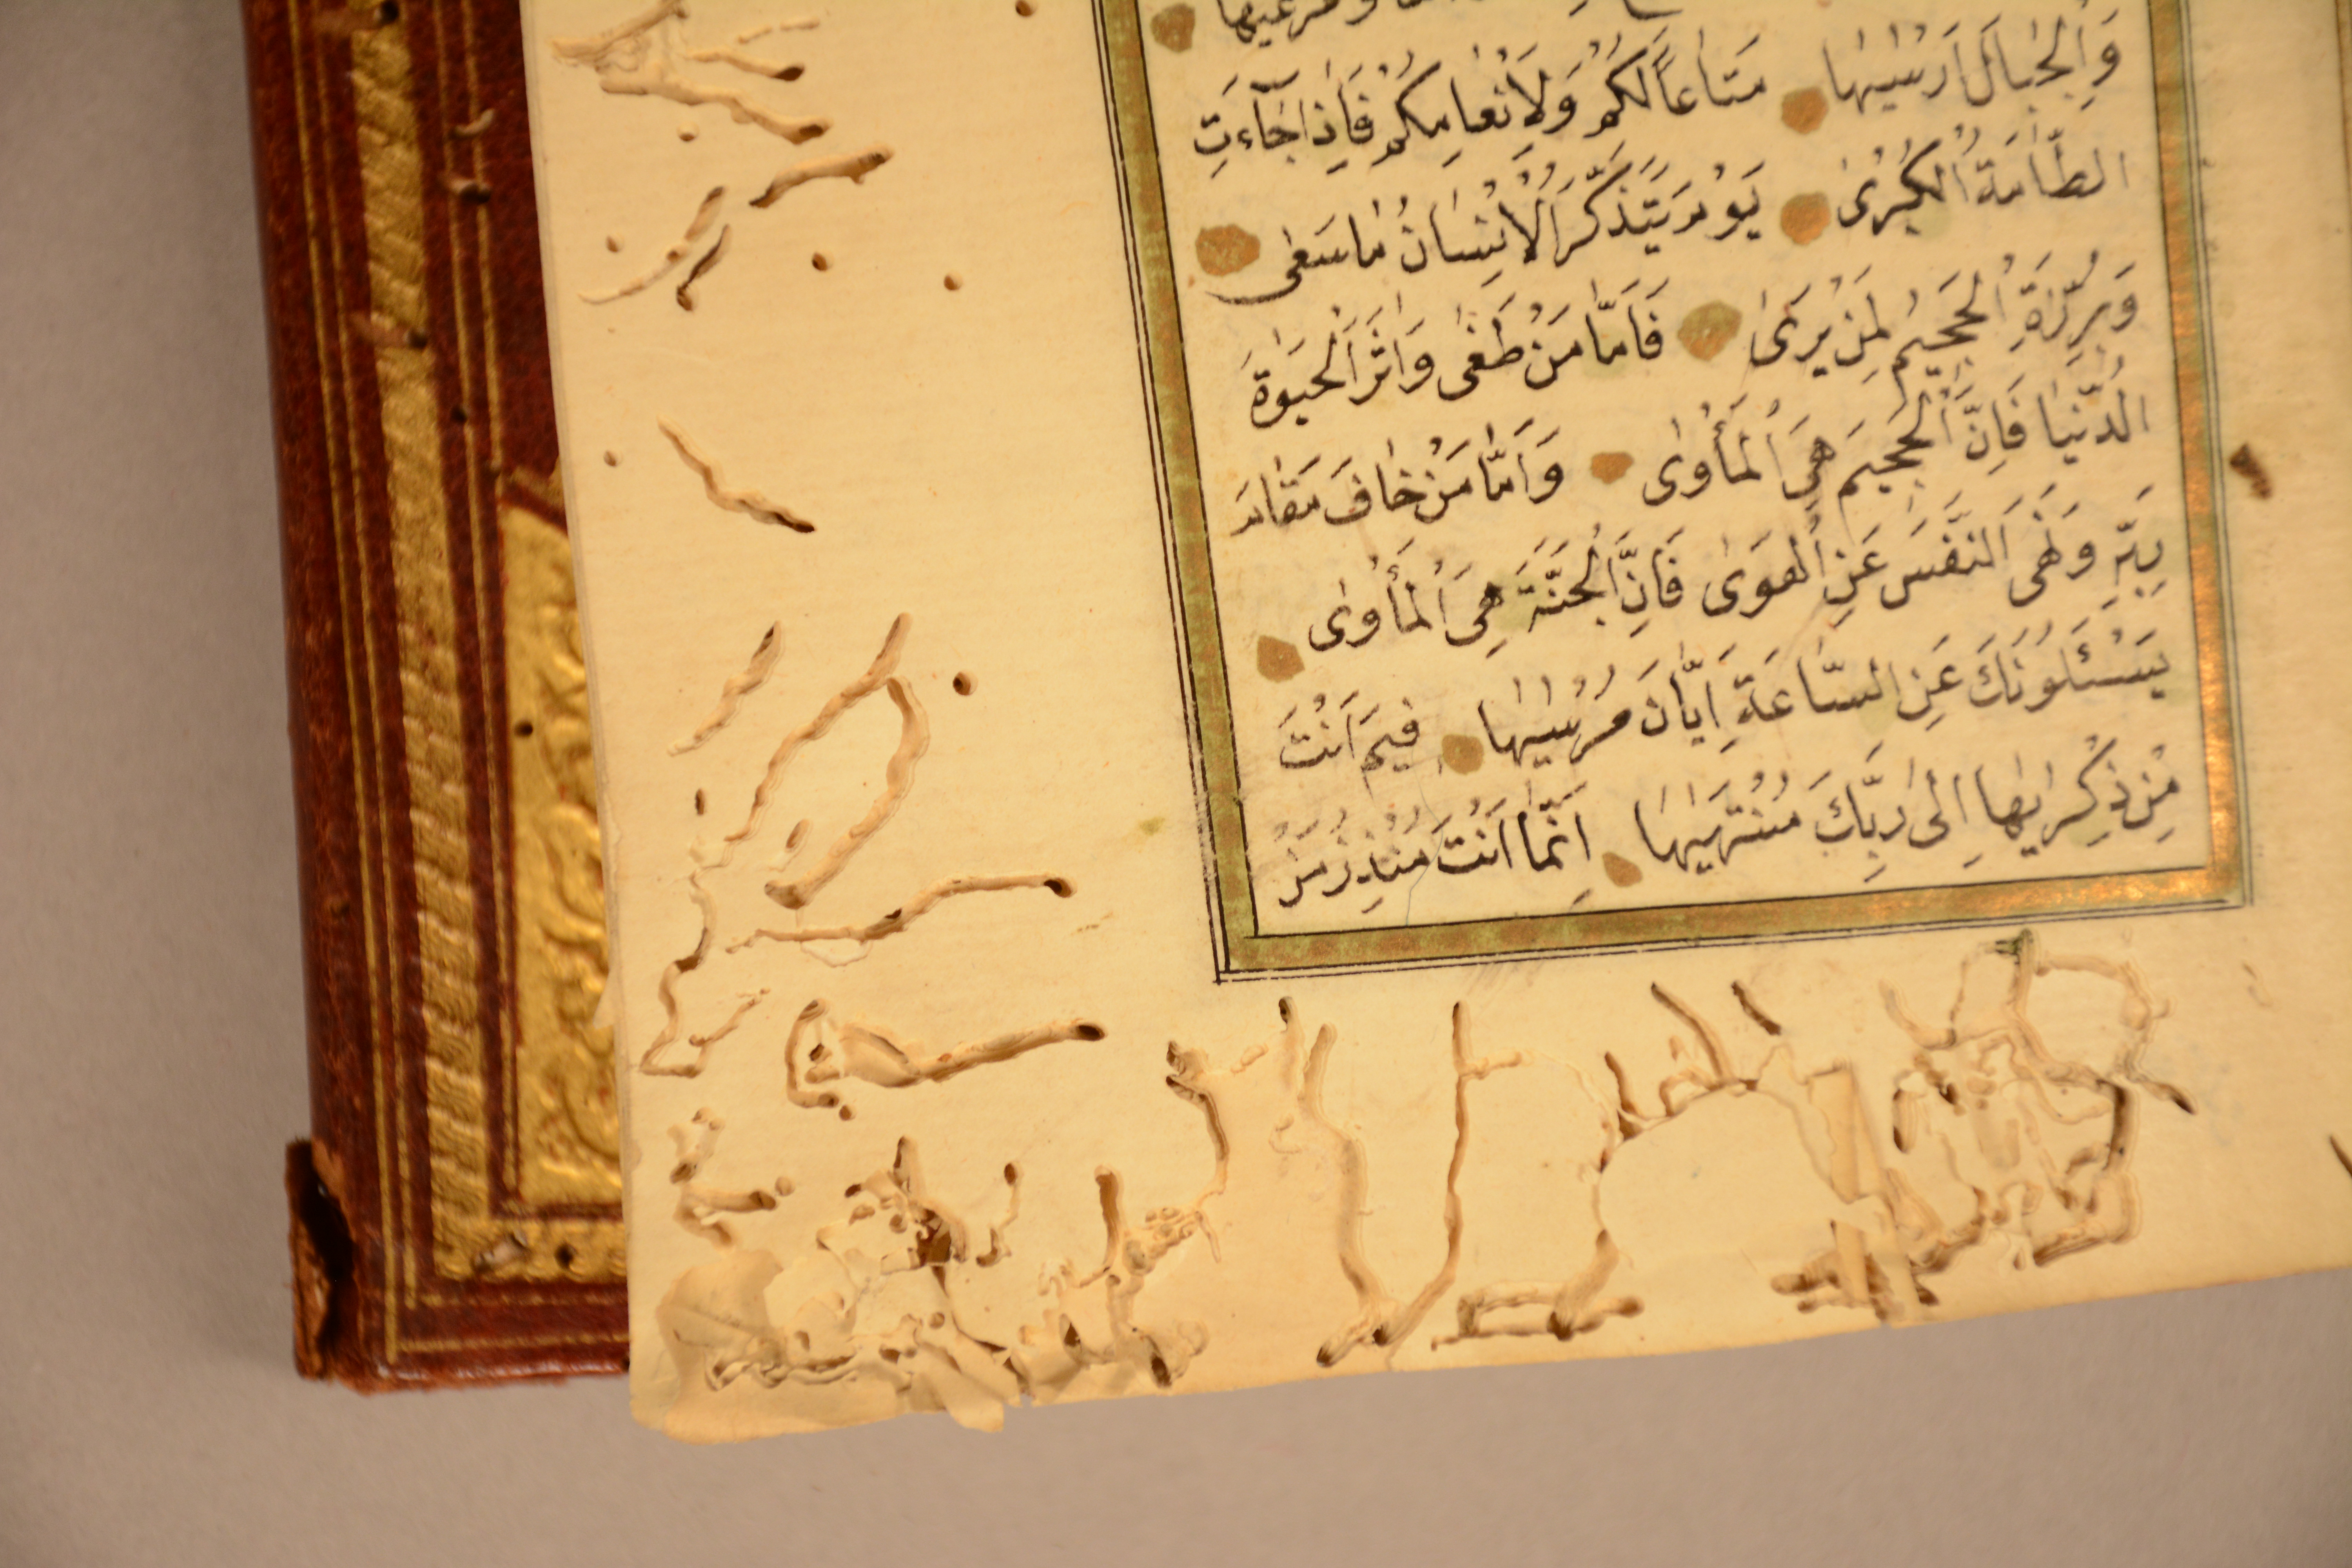 ومرعيها
وَالْجِبَالَ اَرْسٰيهَا مَتَاعًا لَكُمْ وَلِاَنْعَامِكُمْ فَاِذَا جَٓاءَتِ
الطَّٓامَّةُ الْكُبْرٰى يَوْمَ يَتَذَكَّرُ الْاِنْسَانُ مَا سَعٰى
وَبُرِّزَتِ الْجَحِيمُ لِمَنْ يَرٰى فَاَمَّا مَنْ طَغٰى وَاٰثَرَ الْحَيٰوةَ
الدُّنْيَا فَاِنَّ الْجَحِيمَ هِيَ الْمَأْوٰى وَاَمَّا مَنْ خَافَ مَقَامَ
رَبِّهِ وَنَهَى النَّفْسَ عَنِ الْهَوٰى فَاِنَّ الْجَنَّةَ هِيَ الْمَأْوٰى
يَسْئَلُونَكَ عَنِ السَّاعَةِ اَيَّانَ مُرْسٰيهَا فِيمَ اَنْتَ
مِنْ ذِكْرٰيهَا اِلٰى رَبِّكَ مُنْتَهٰيهَا اِنَّمَٓا اَنْتَ مُنْذِرُ مَنْ